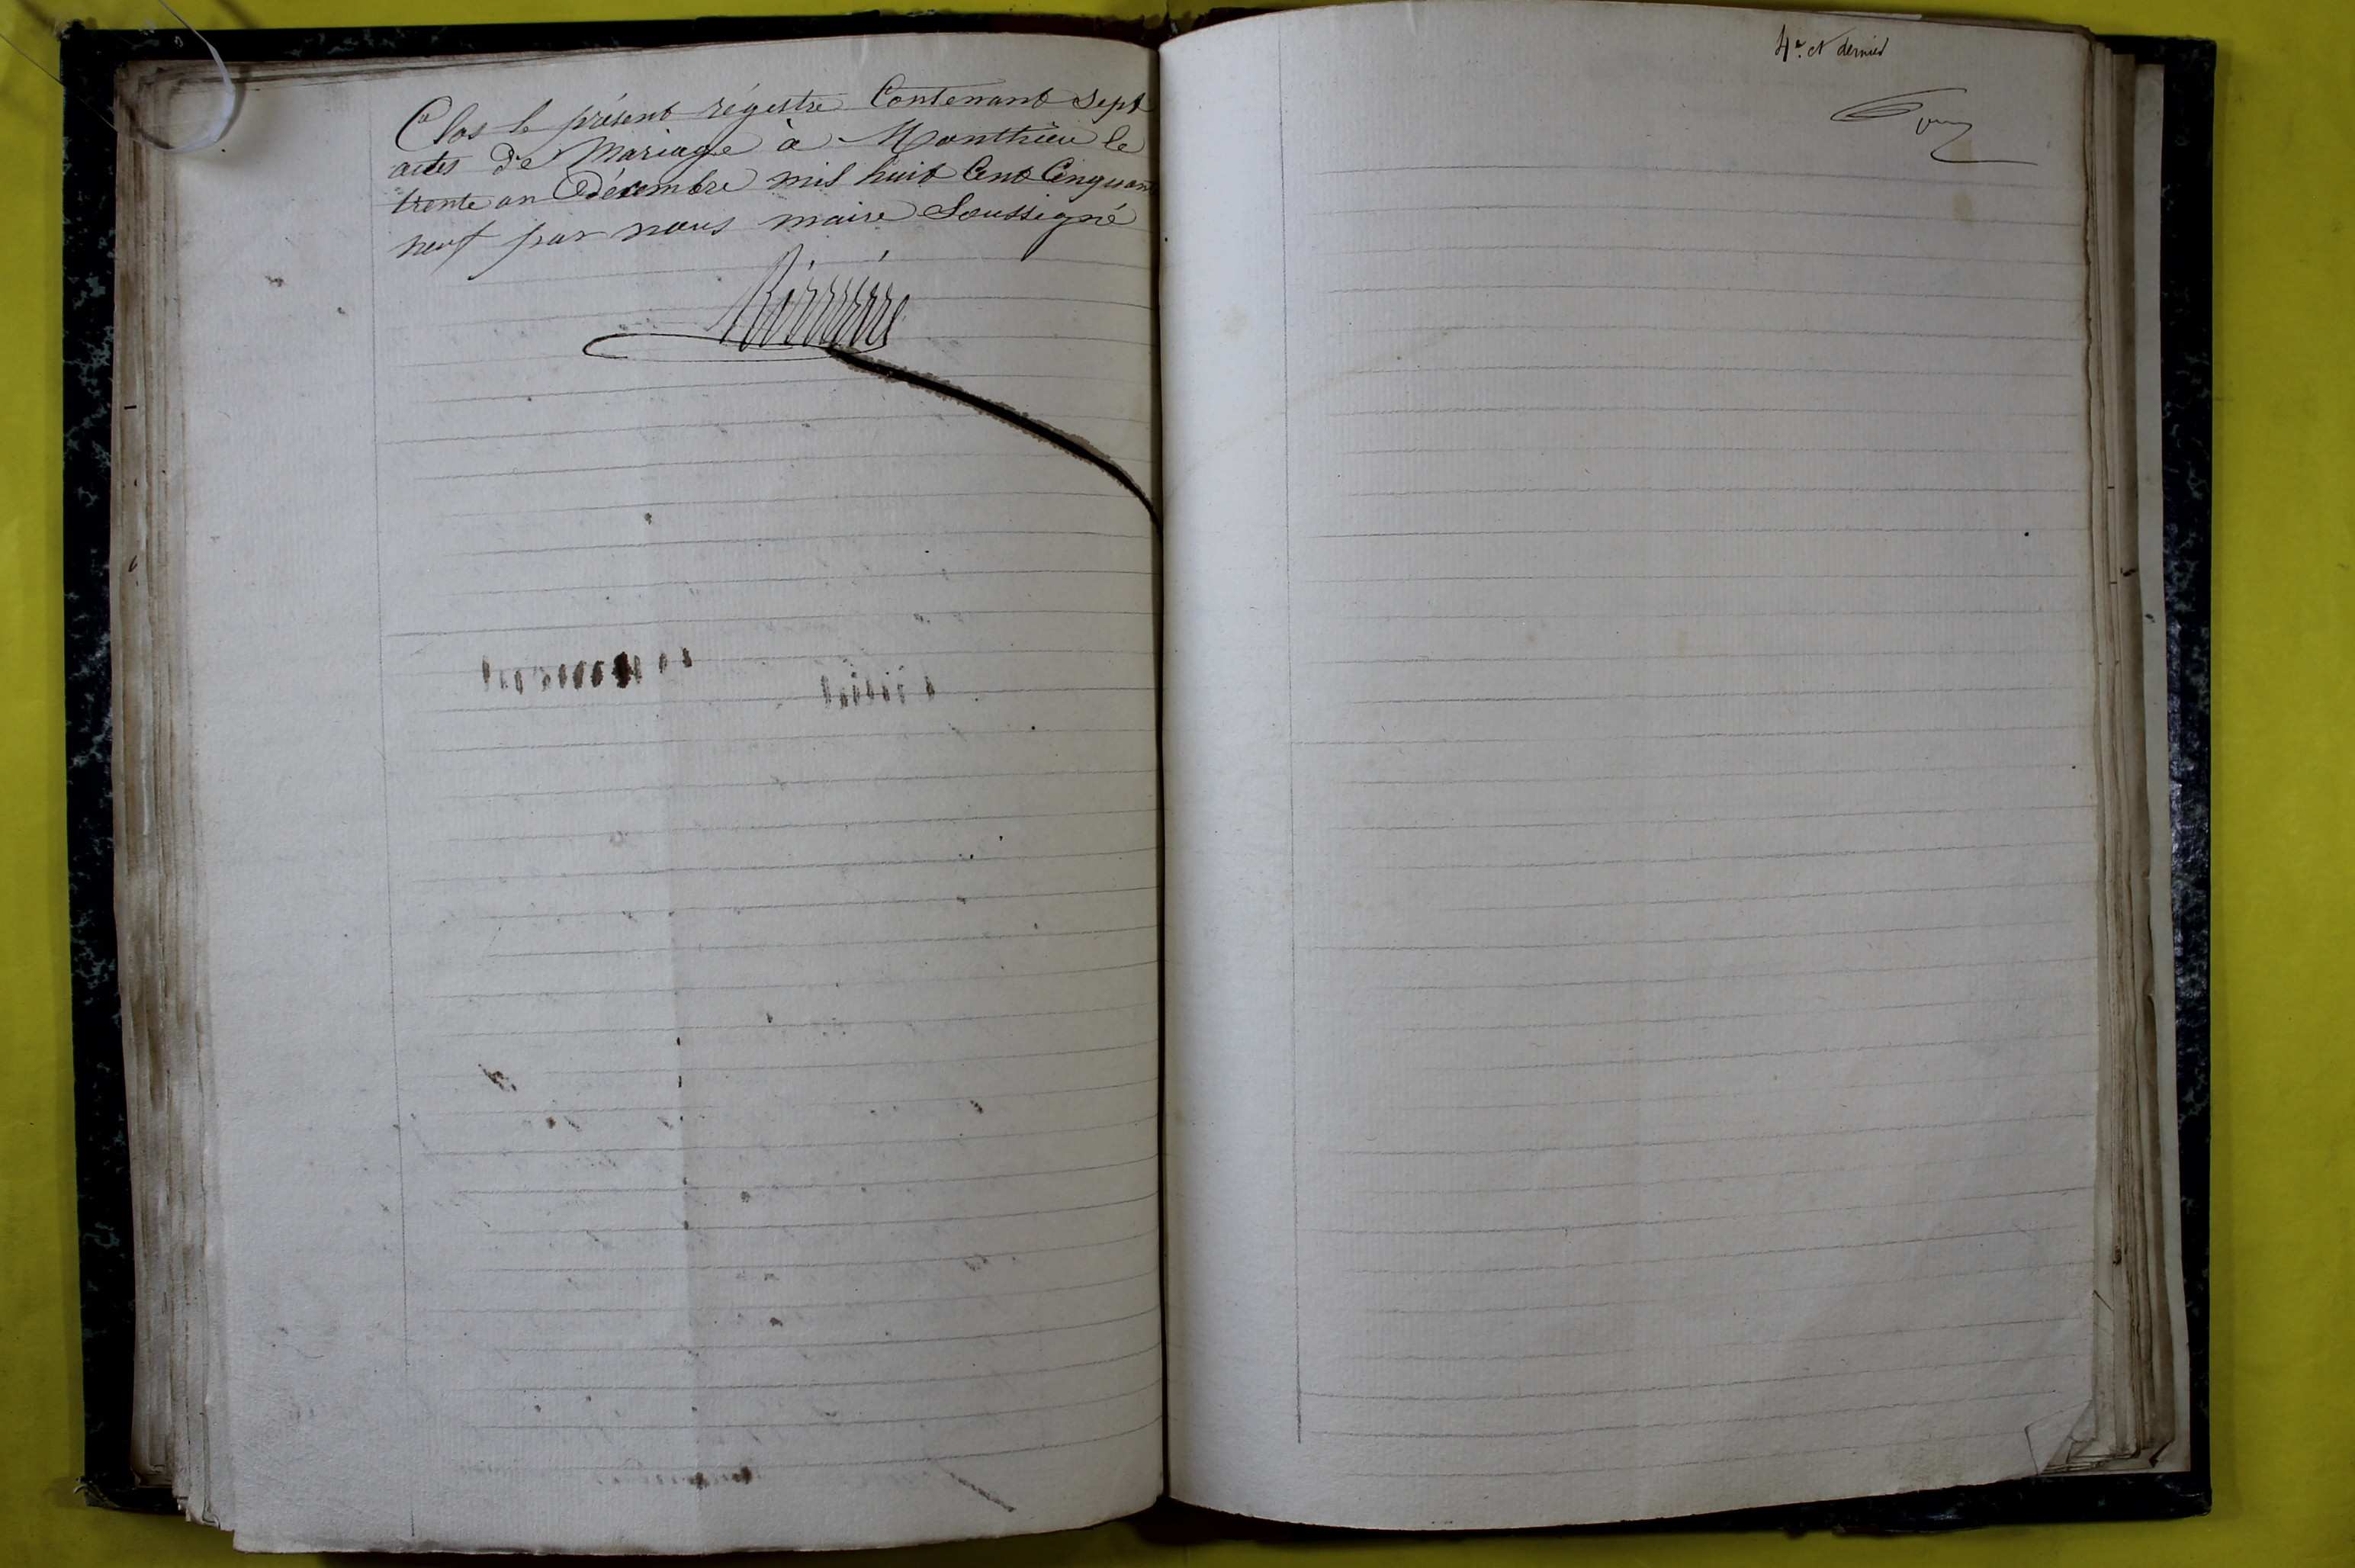 Clos le présent régistre Contenant Sept
actes de Mariage à Monthieu le
trente un Décembre mil huit Cent Cinquan
neuf par nous maire Soussigné
4e. et dernier